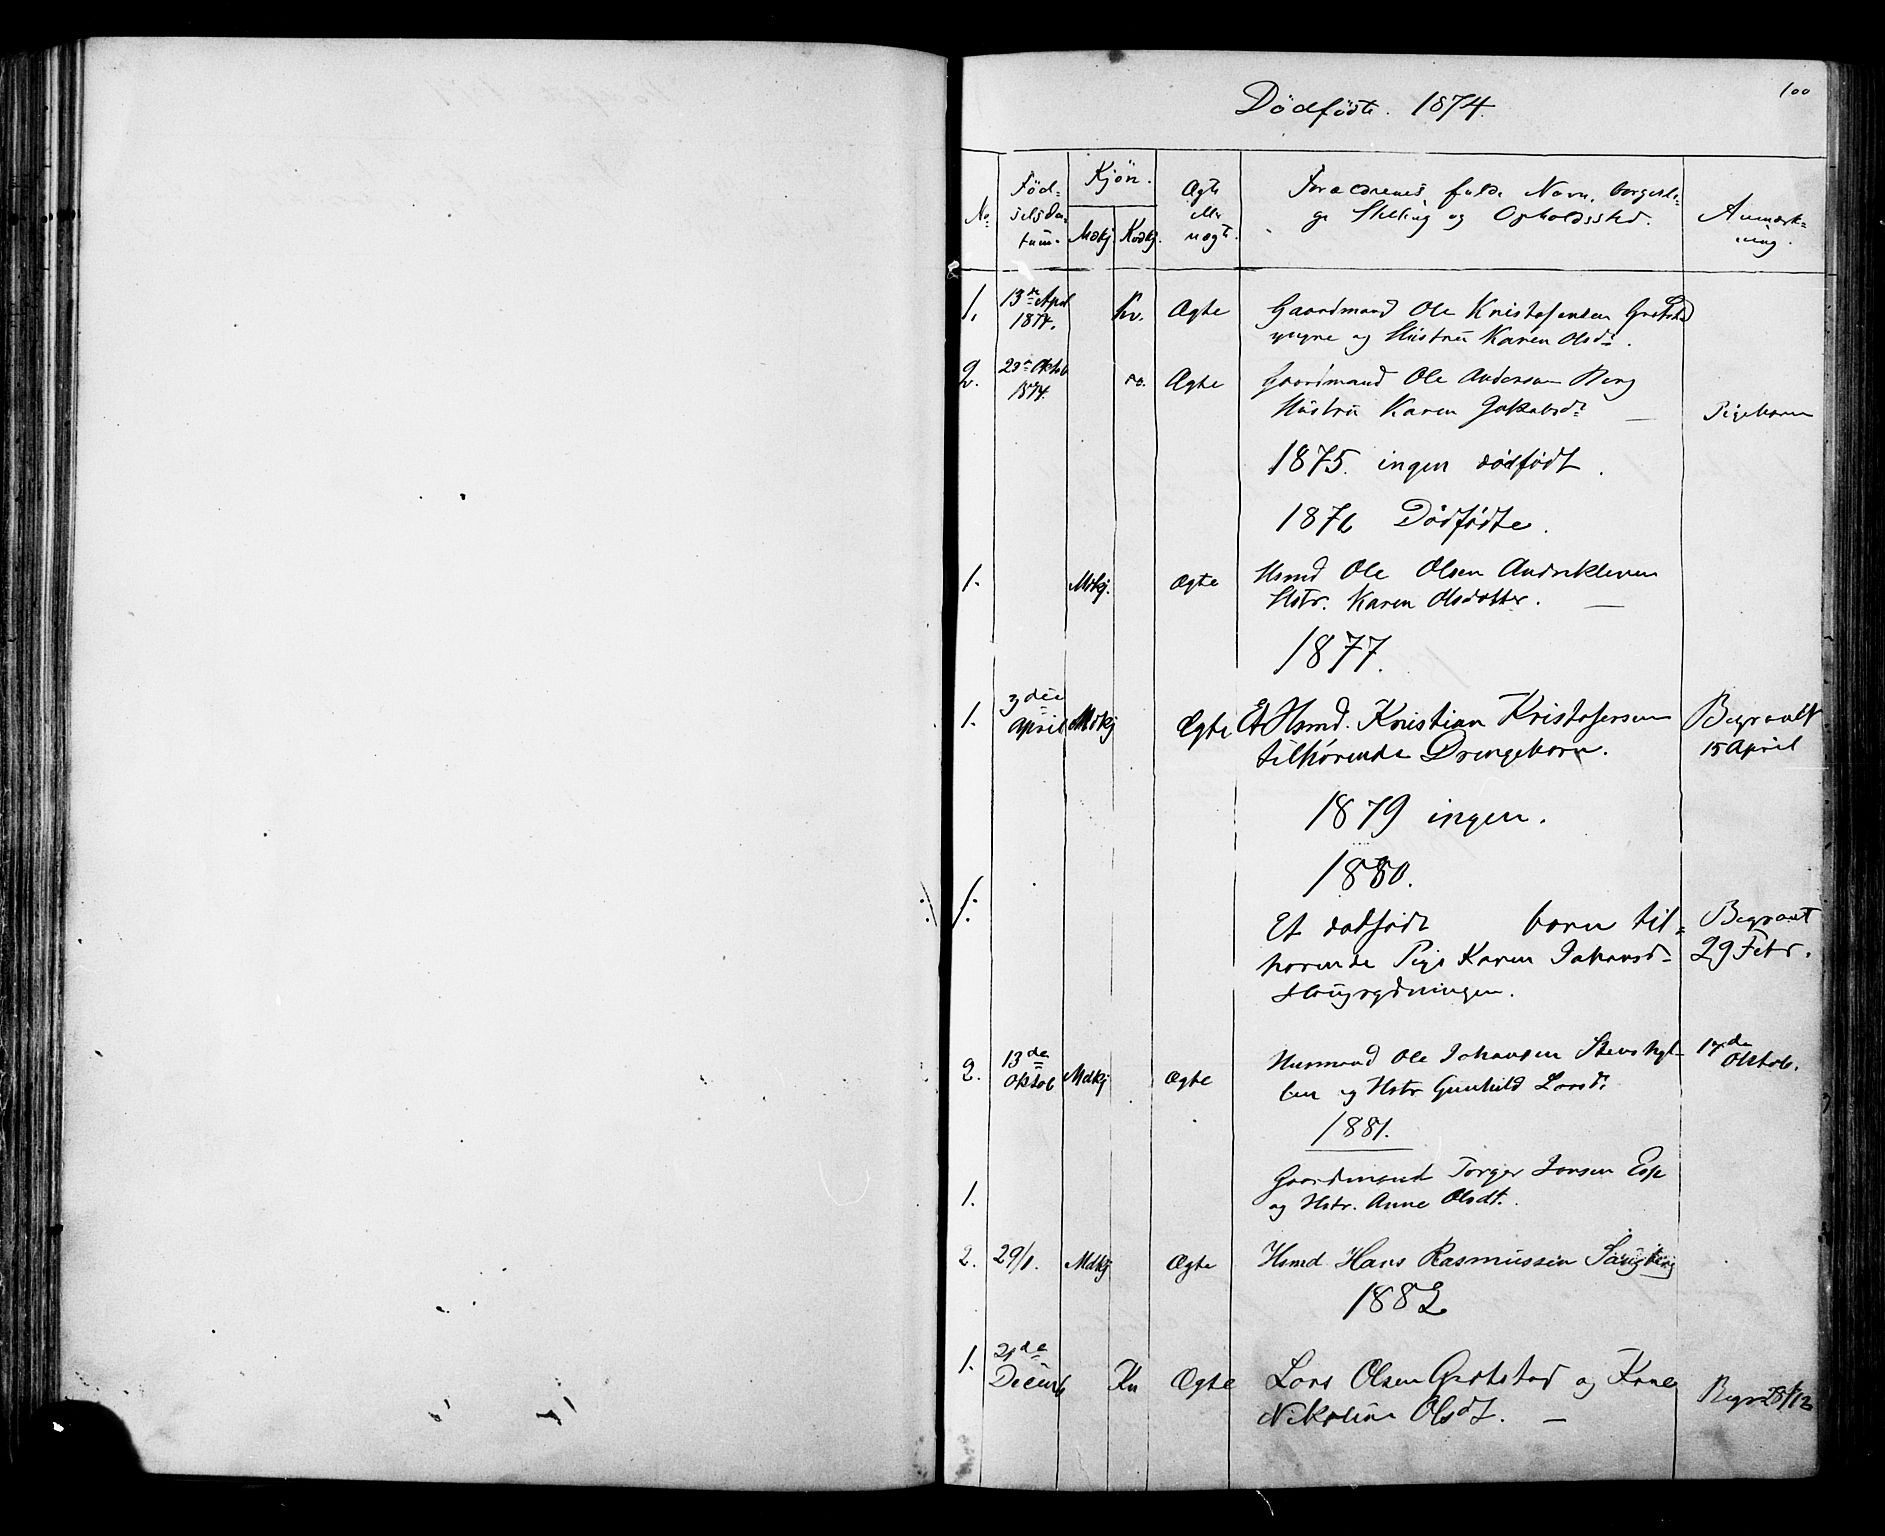 100
Dödfödte. 1874.
No.
Föd=
selsda=
tum.
Kjön.
Mdkj. Kvdkj.
Ægte
eller
uægt.
Forældrenes fulde Navn, borgerli=
ge Stilling og Opholdssted.
Anmærk=
ning.
1. 13de April Kv. Ægte Gaardmand Ole Kristofersen
1874. og Hustru Karen Olsd.
2. 23de Oktob do. Ægte Gaardmand Ole Andersen Berg
1874. Hustru Karen Jakobsd. — Pigebarn
1875. ingen dödfödt.
1876 Dödfödte.
1. Mdkj. Ægte Hsmd Ole Olsen Andrekleven
Hstr. Karen Olsdatter. —
1877.
1. 3die April Mdkj Ægte Et Hsmd. Kristian Kristofersen Begravet
tilhörende Drengebarn. 15 April
1879 ingen.
1880.
1. Et dödfödt barn til= Begravet
hörende Pige Karen Johansd. 29 Febr.
Haugrydningen.
2. 13de Oktob Mdkj Ægte Husmand Ole Johansen
og Hstr Gunhild Larsd. Oktob.
1881.
1. Gaardmand Torger Jonsen Esp
og Hstr. Anne Olsdt.
2. 29/1. Mdkj Ægte Hsmd Hans Rasmussen Haugberg
1882
1. 21de Decemb Kv Ægte Lars Olsen Grötstad og Kone Begr 28/12
Nikoline Olsdt. —